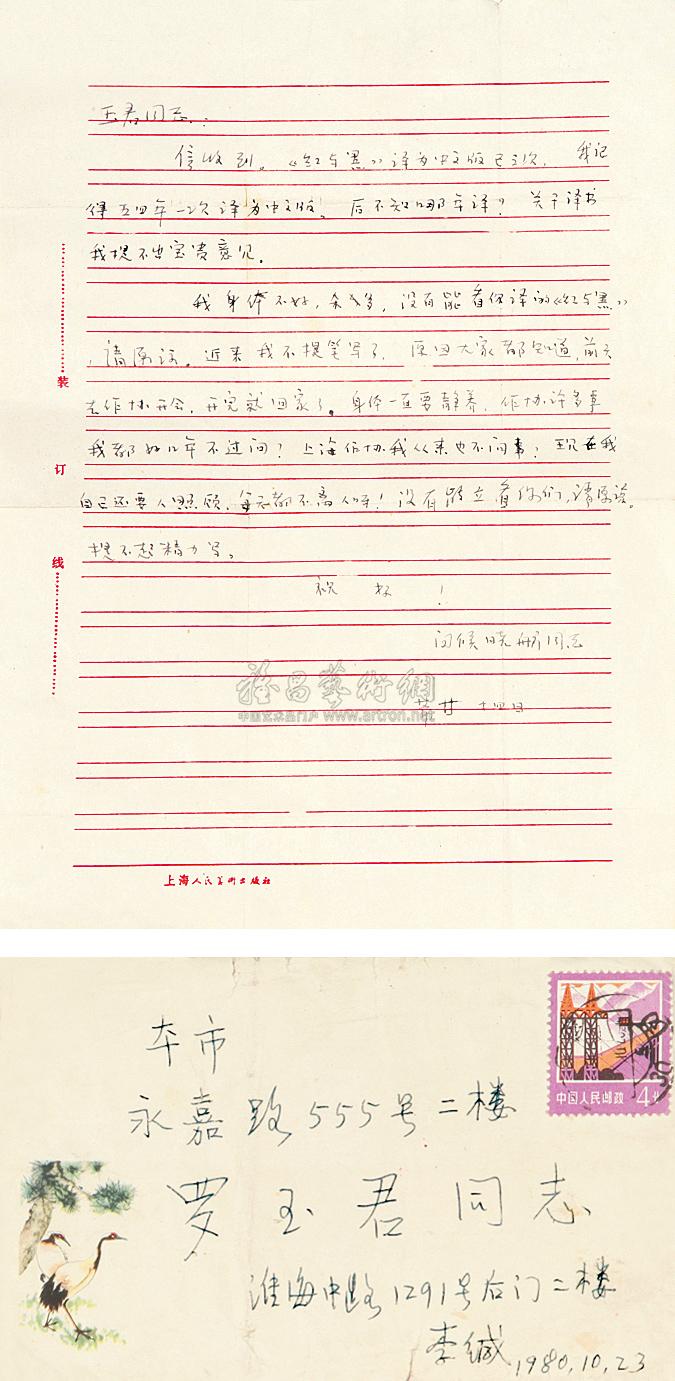 玉君同志：
信收到。《红与黑》译为中文版已三次，我记
得五四年一次译为中文版。后不知哪年译？关于译书
我提不出宝贵意见。
我身体不好，杂又多，没有能看你译的《红与黑》
，请原谅。近来我不提笔写了，原因大家都知道，前天
去作协开会，开完就回家了。身体一直要静养，作协许多事
我都好几年不过问？上海作协我从来也不问事？现在我
自己还要人照顾，每天都不离人呀！没有路去看你们，请原谅。
提不起精力写。
祝好！
问候晓舟同志
芾甘 十四日
装
订
线
上海人民美术出版社
雅昌藝術網
中国艺术品门户 www.artron.net
中国人民邮政 4分
本市
永嘉路555号二楼
罗玉君同志
淮海中路1291号后门二楼
李缄 1980.10.23